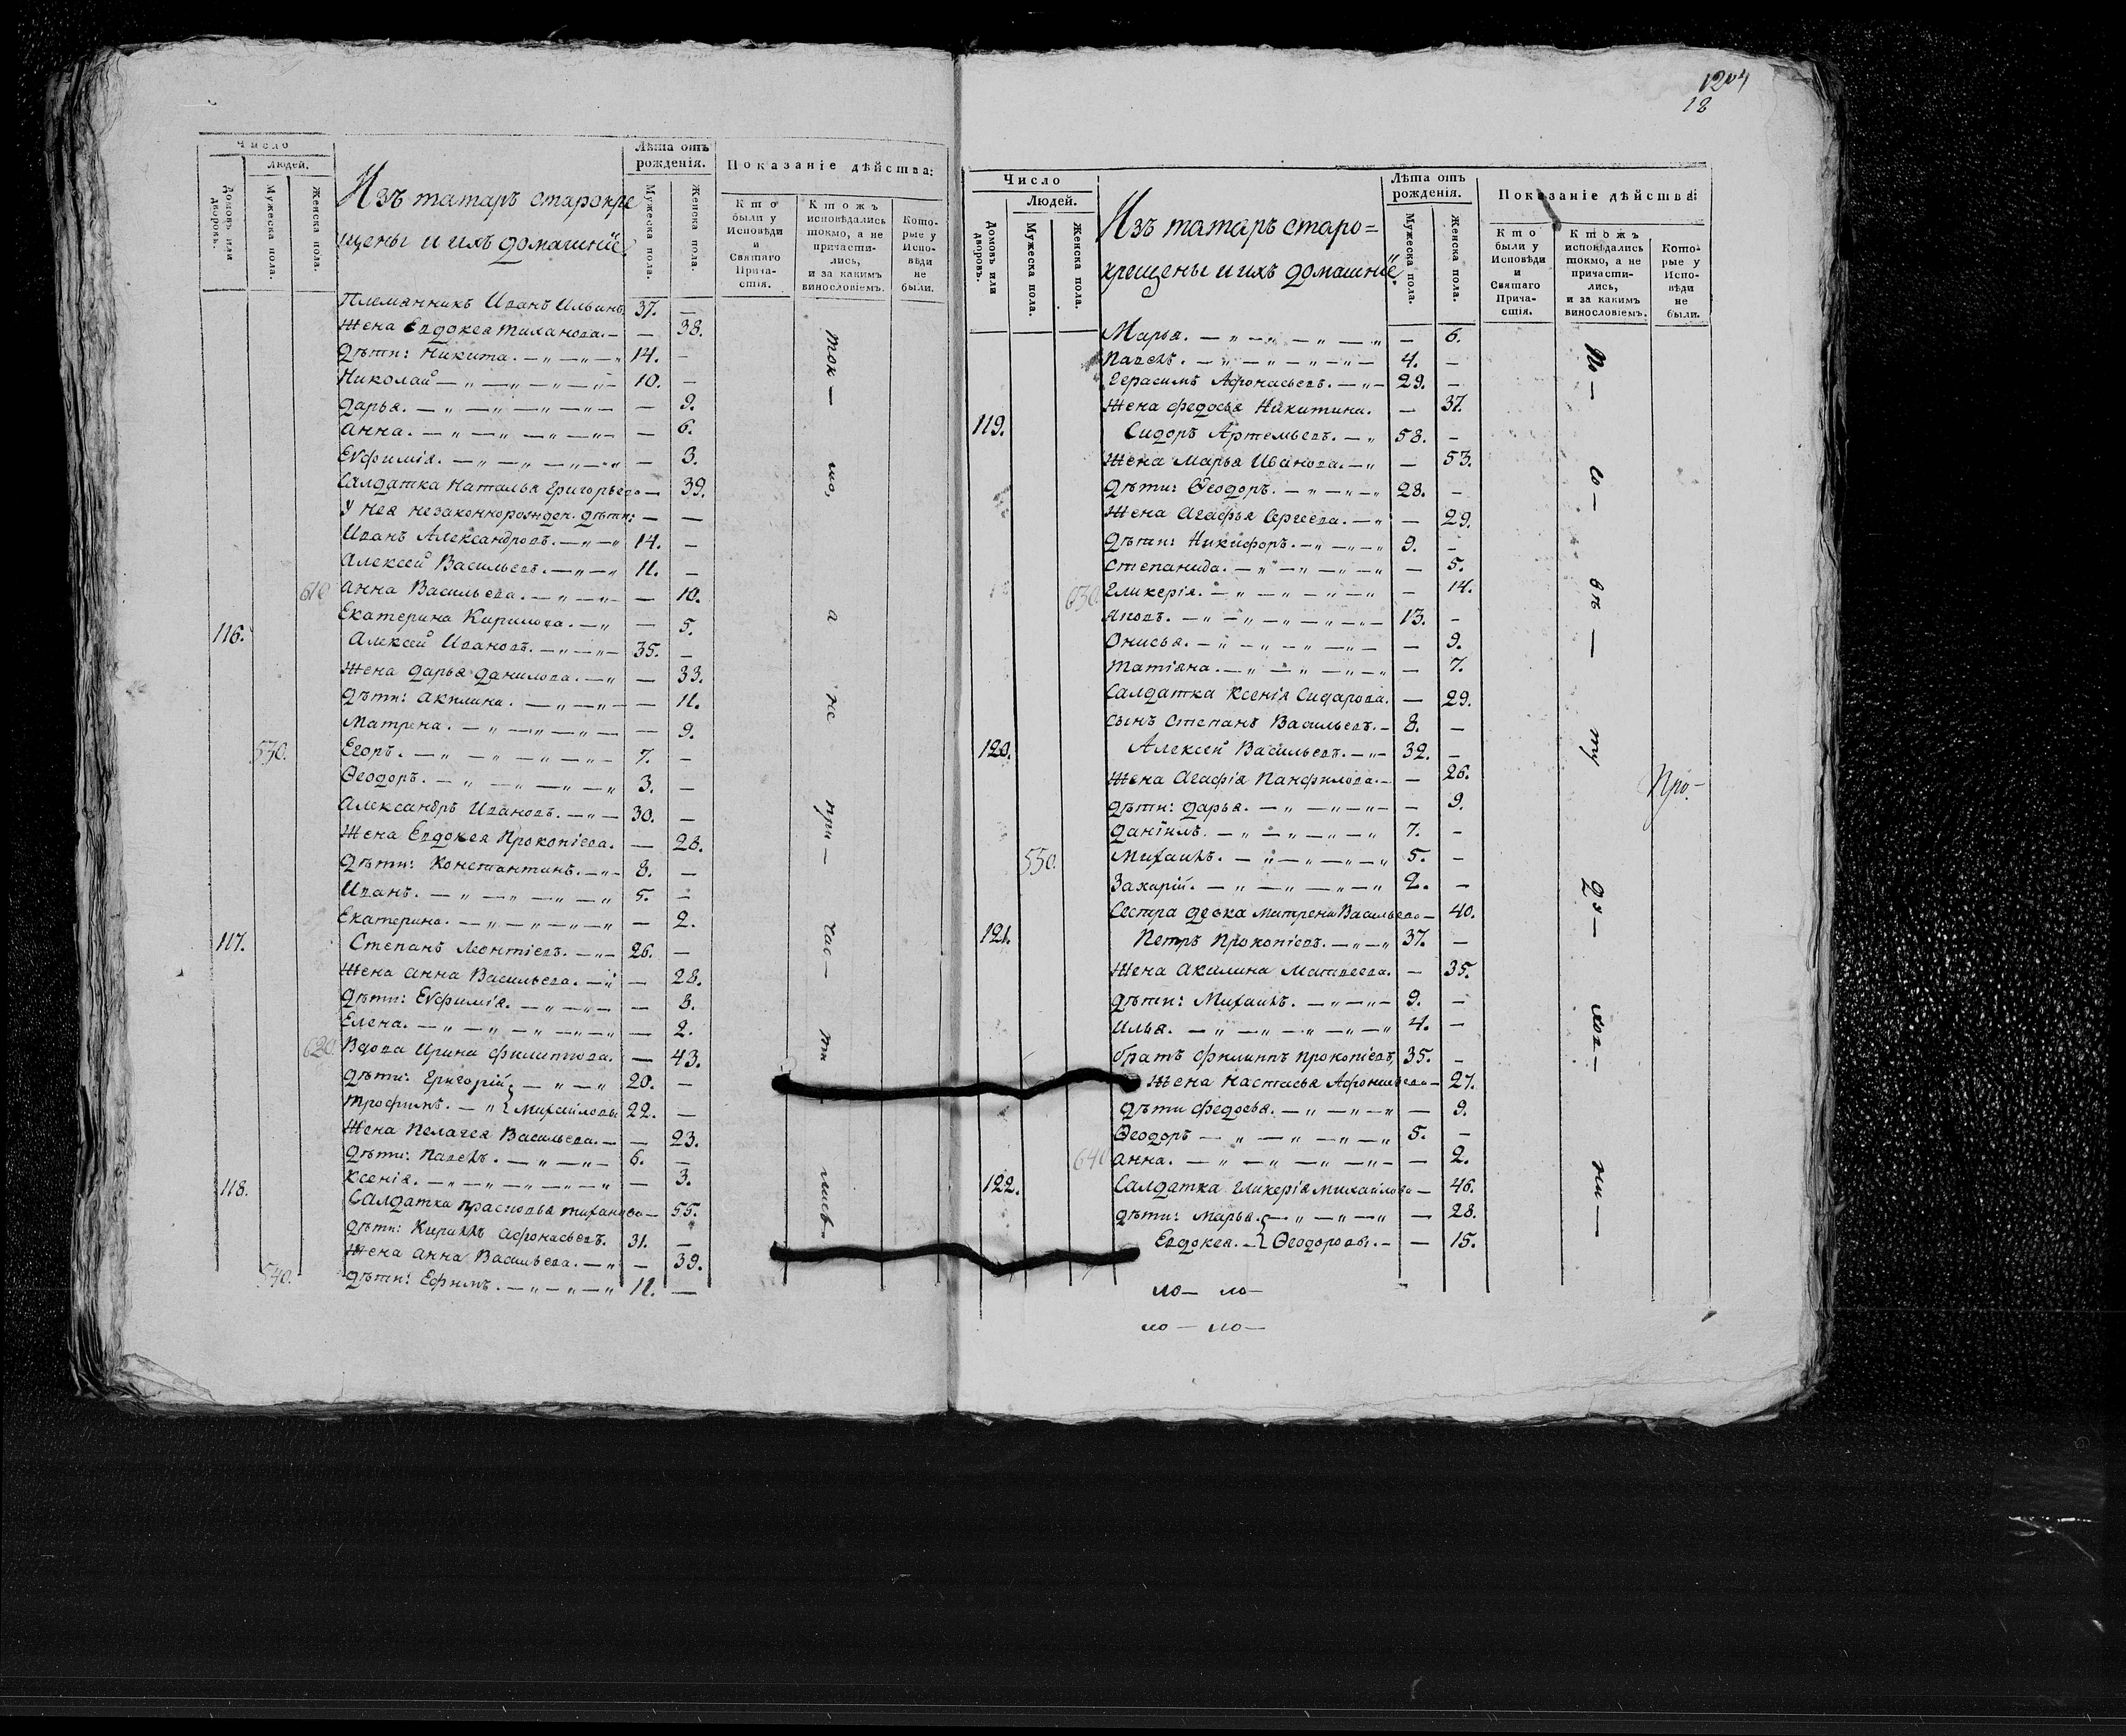 1204
18
Число
Людей.
Домовъ или дворовъ.
Мужеска пола.
Женска пола.
Изъ татаръ старокре
щены и ихъ домашніе.
Лѣта отъ рожденія.
Мужеска пола.
Женска пола.
Показаніе дѣйства:
Кто были у Исповѣди и Святаго Прича- стія.
Ктожъ исповѣдались токмо, а не причасти- лись, и за какимъ винословіемъ.
Кото- рые у Испо- вѣди не были.
Племянникъ Иванъ Ильинъ 37. —
Жена Евдокея — 38.
Дѣти: Никита. 14. —
Николай 10. —
Дарья. — 9.
Анна. — 6.
Евфимія. — 3.
Салдатка Наталья Григорьева — 39.
У нея незаконнорожден. дѣти: — —
Иванъ Александровъ. 14. —
Алексей Васильевъ. 11. —
610 Анна Васильева. — 10.
Екатерина Кирилова. — 5.
116. Алексей Ивановъ. 35. —
Жена Дарья Данилова. — 33.
Дѣти: Акилина. — 11.
Матрена. — 9.
530. Егоръ. 7. —
Ѳеодоръ. 3. —
Александръ Ивановъ. 30. —
Жена Евдокея Прокопіева. — 28.
Дѣти: Константинъ. 8. —
Иванъ. 5. —
Екатерина. — 2.
117. Степанъ Леонтіевъ. 26. —
Жена Анна Васильева. — 28.
Дѣти: Евфимія. — 8.
Елена. — 2.
620. Вдова Ирина Филиппова. — 43.
Дѣти: Григорій 20. —
Трофимъ. Михайловы 22. —
Жена Пелагея Васильева. — 23.
Дѣти: Павелъ. 6. —
Ксенія. — 3.
118. Салдатка Прасковья — 55.
Дѣти: Кирилъ Афонасьевъ. 31. —
Жена Анна Васильева. — 39.
540. Дѣти: Ефимъ. 11. —
ток — мо, а не при — час — ти лись —
Число
Людей.
Домовъ или дворовъ.
Мужеска пола.
Женска пола.
Изъ татаръ старо=
крещены и ихъ домашніе.
Лѣта отъ рожденія.
Мужеска пола.
Женска пола.
Показаніе дѣйства:
Кто были у Исповѣди и Святаго Прича- стія.
Ктожъ исповѣдались токмо, а не причасти- лись, и за какимъ винословіемъ.
Кото- рые у Испо- вѣди не были.
Марья. — 6.
Павелъ. 4. —
Герасимъ Афонасьевъ. 29. —
Жена Федосья Никитина. — 37.
119. Сидоръ Артемьевъ. 58. —
Жена Марья Иванова. — 53.
Дѣти: Ѳеодоръ. 28. —
Жена Агафья Сергеева. — 29.
Дѣти: Никифоръ. 9. —
Степанида. — 5.
630. Гликерія. — 14.
Яковъ. 13. —
Онисья. — 9.
Татіяна. — 7.
Салдатка Ксенія Сидарова. — 29.
Сынъ Степанъ Васильевъ. 8. —
120. Алексей Васильевъ. 32. —
Жена Агафія Панфилова. — 26.
Дѣти: Дарья. — 9.
Даніилъ. 7. —
550. Михаилъ. 5. —
Захарій. 2. —
Сестра девка Матрена Васильева — 40.
121. Петръ Прокопіевъ. 37. —
Жена Акилина Матвеева. — 35.
Дѣти: Михаилъ. 9. —
Илья. 4. —
Братъ Филиппъ Прокопіевъ, 35. —
Жена Настасья Афонасьева — 27.
Дѣти Федосья. — 9.
Ѳеодоръ 5. —
640 Анна. — 2.
122. Салдатка Гликерія Михайлова — 46.
Дѣти: Марья. — 28.
Евдокея. Ѳеодоровы. — 15.
Про-
ло— ло—
ло — ло—